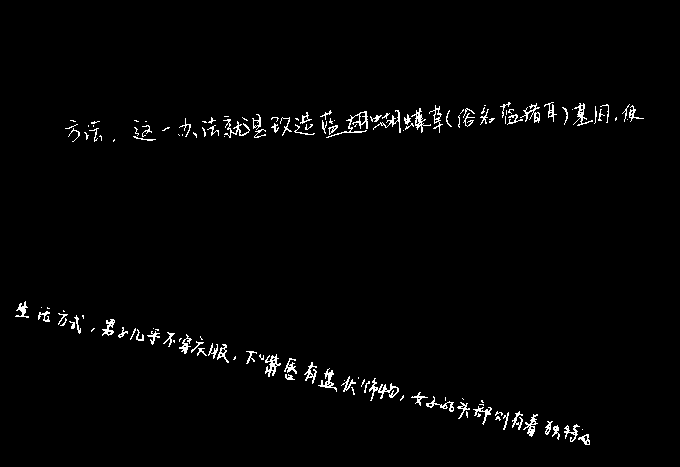 方法。这一办法就是改造蓝翅蝴蝶草(俗名蓝猪耳)基因,使
生活方式,男子几乎不穿衣服,下嘴唇有盘状饰物,女子的头部则有着独特的